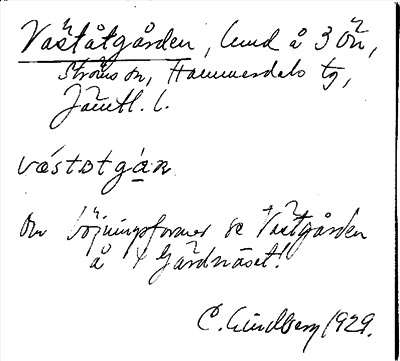 Väståtgården, lund å 3 ön,
Ströms sn, Hammerdals tg,
Jämtl. l.
våstotgán
Om böjningsformer se Västgården
å Gärdnäset!
C. Lindberg 1929.